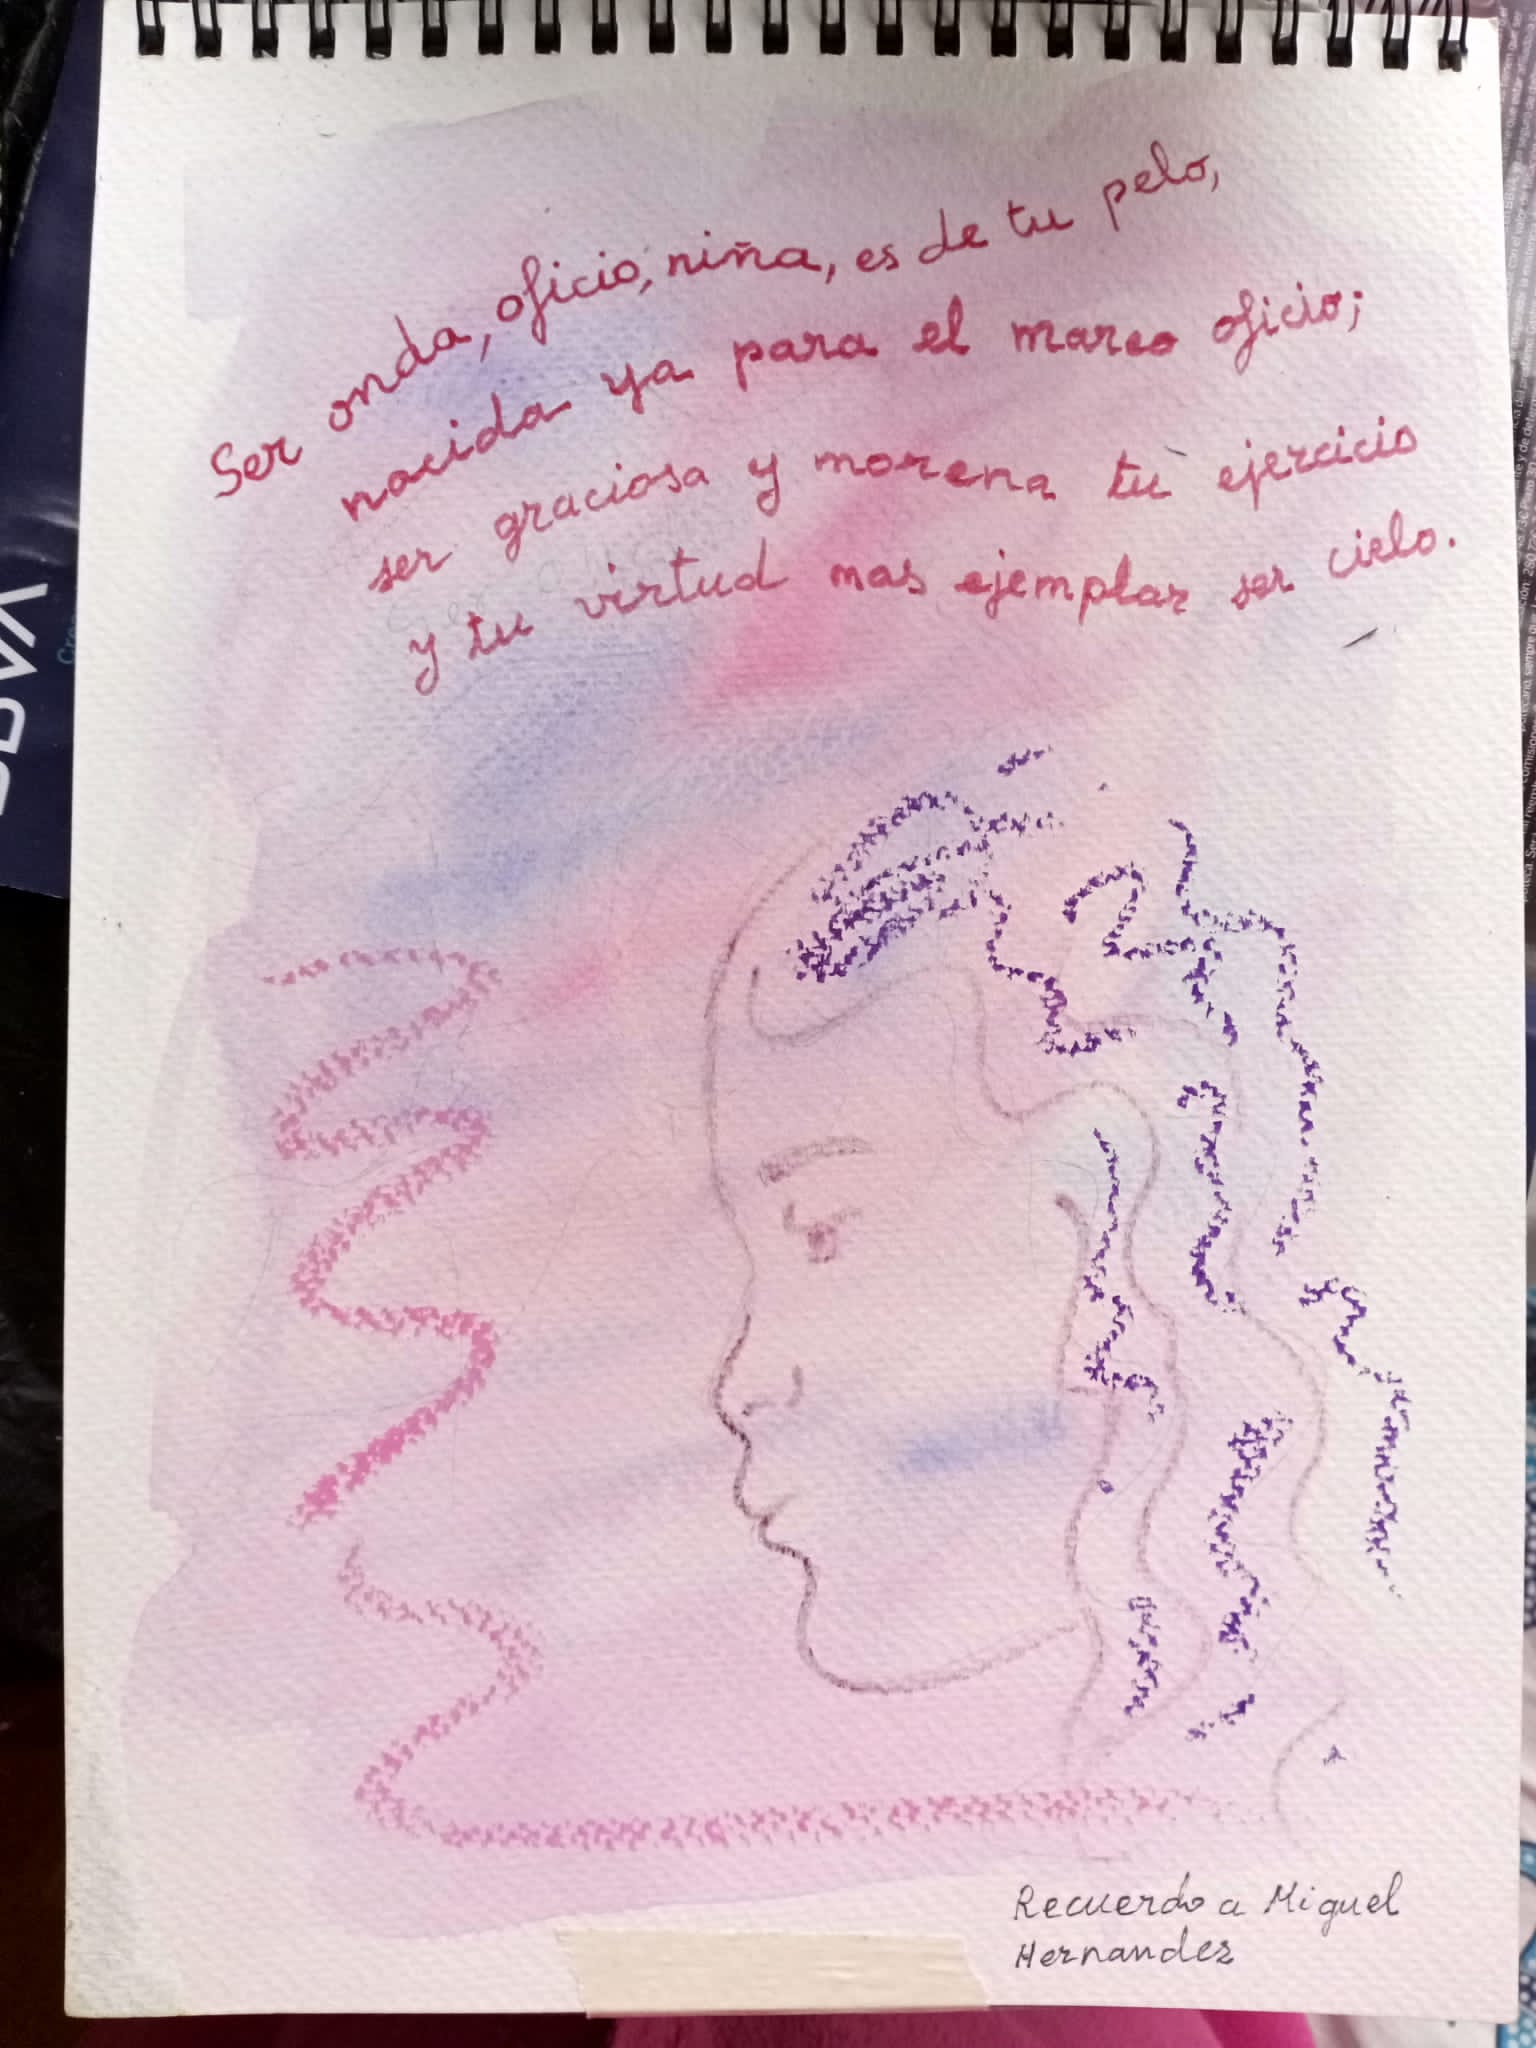 Ser onda, oficio, niña, es de tu pelo,
nacida ya para el mareo oficio;
ser graciosa y morena tu ejercicio
y tu virtud mas ejemplar ser cielo.
Recuerdo a Miguel
Hernandez
BBVA